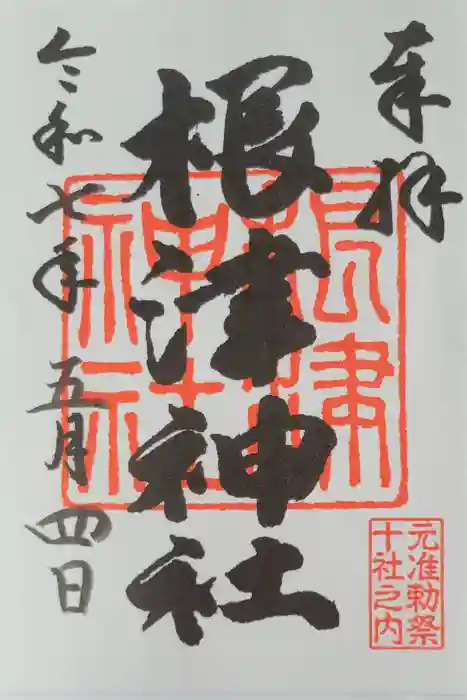 奉拝
根津神社
令和七年五月四日
根津
神社
元准勅祭
十社之内